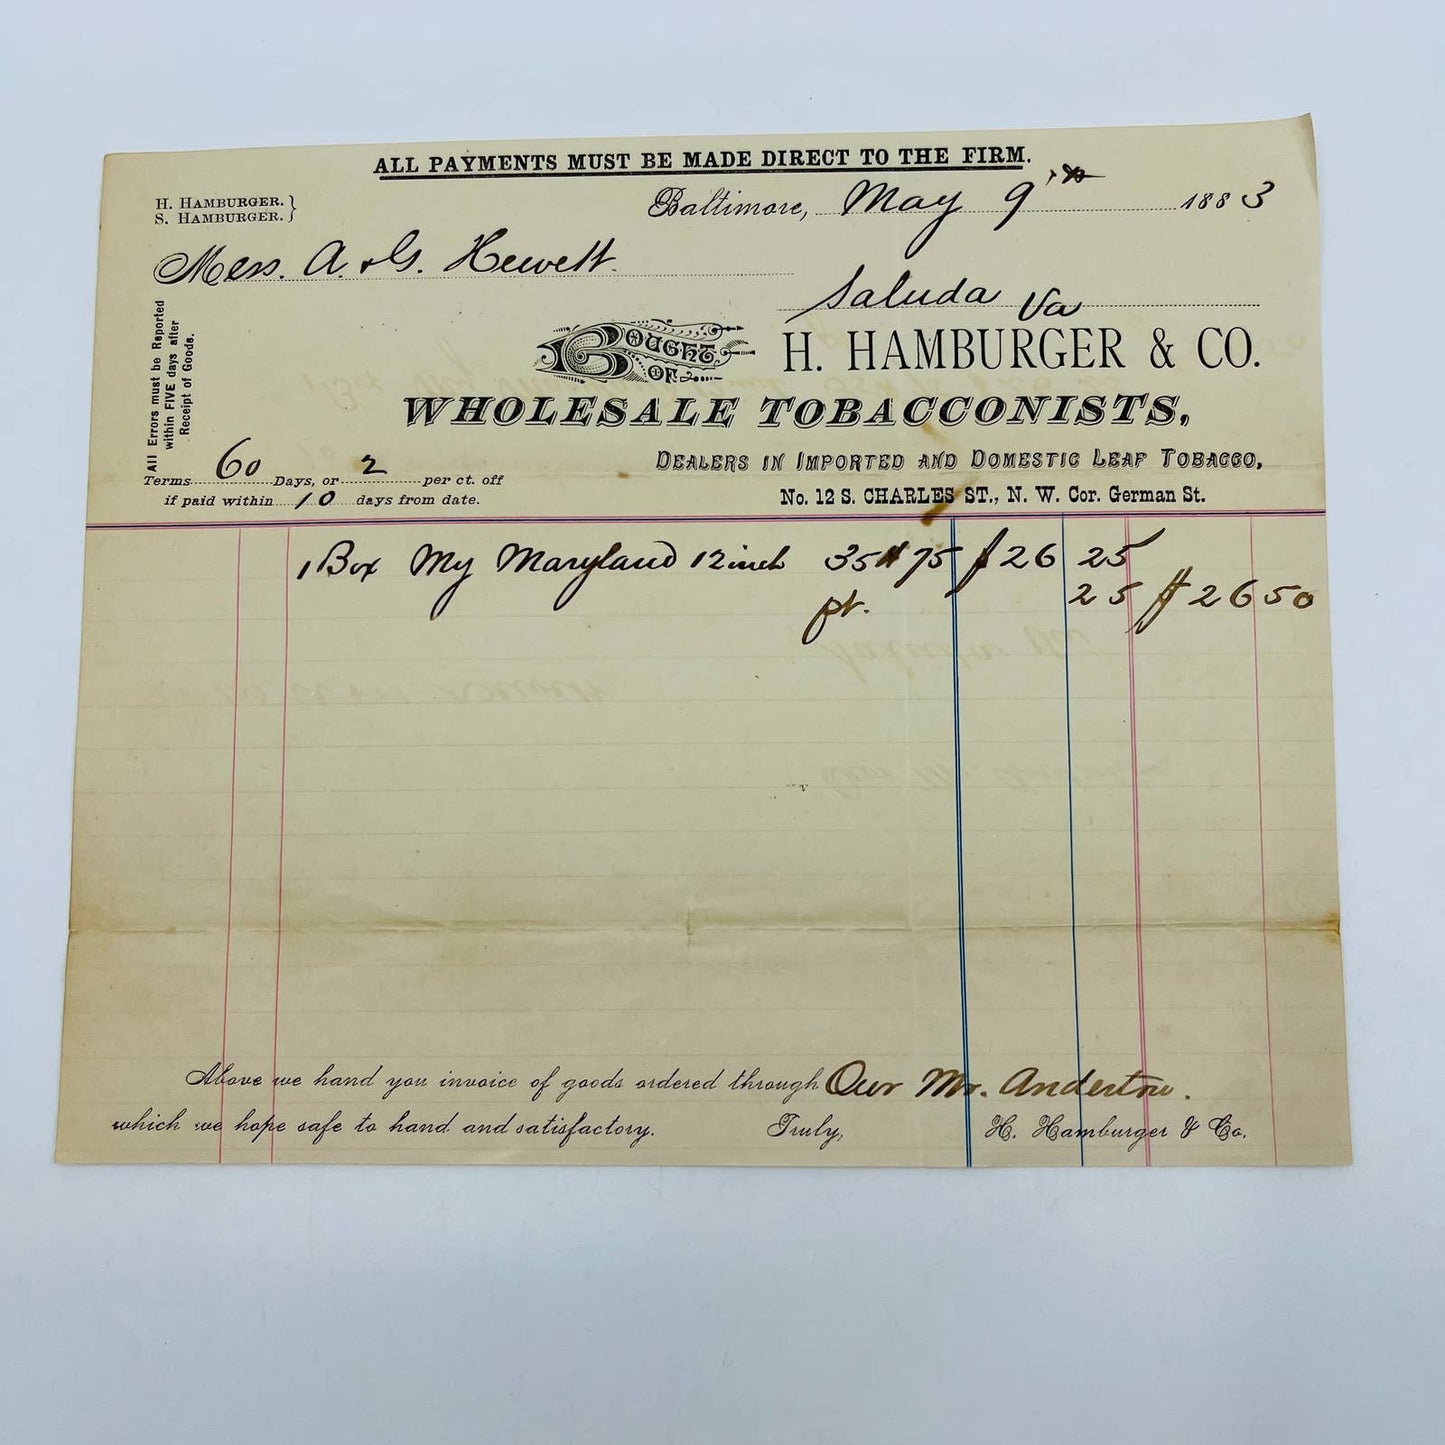 ALL PAYMENTS MUST BE MADE DIRECT TO THE FIRM.
H. HAMBURGER.
S. HAMBURGER.
Baltimore, May 9th 1883
Mess. A. & G. Hewett.
Saluda Va
All Errors must be Reported
within FIVE days after
Receipt of Goods.
BOUGHT OF H. HAMBURGER & CO.
WHOLESALE TOBACCONISTS,
DEALERS IN IMPORTED AND DOMESTIC LEAF TOBACCO,
No. 12 S. CHARLES ST., N. W. Cor. German St.
Terms 60 Days, or 2 per ct. off
if paid within 10 days from date.
1 Box My Maryland 12 inch 35# 75 $26 25
pt. 25 $26 50
Above we hand you invoice of goods ordered through Our Mr. Anderton.
which we hope safe to hand and satisfactory. Truly, H. Hamburger & Co.